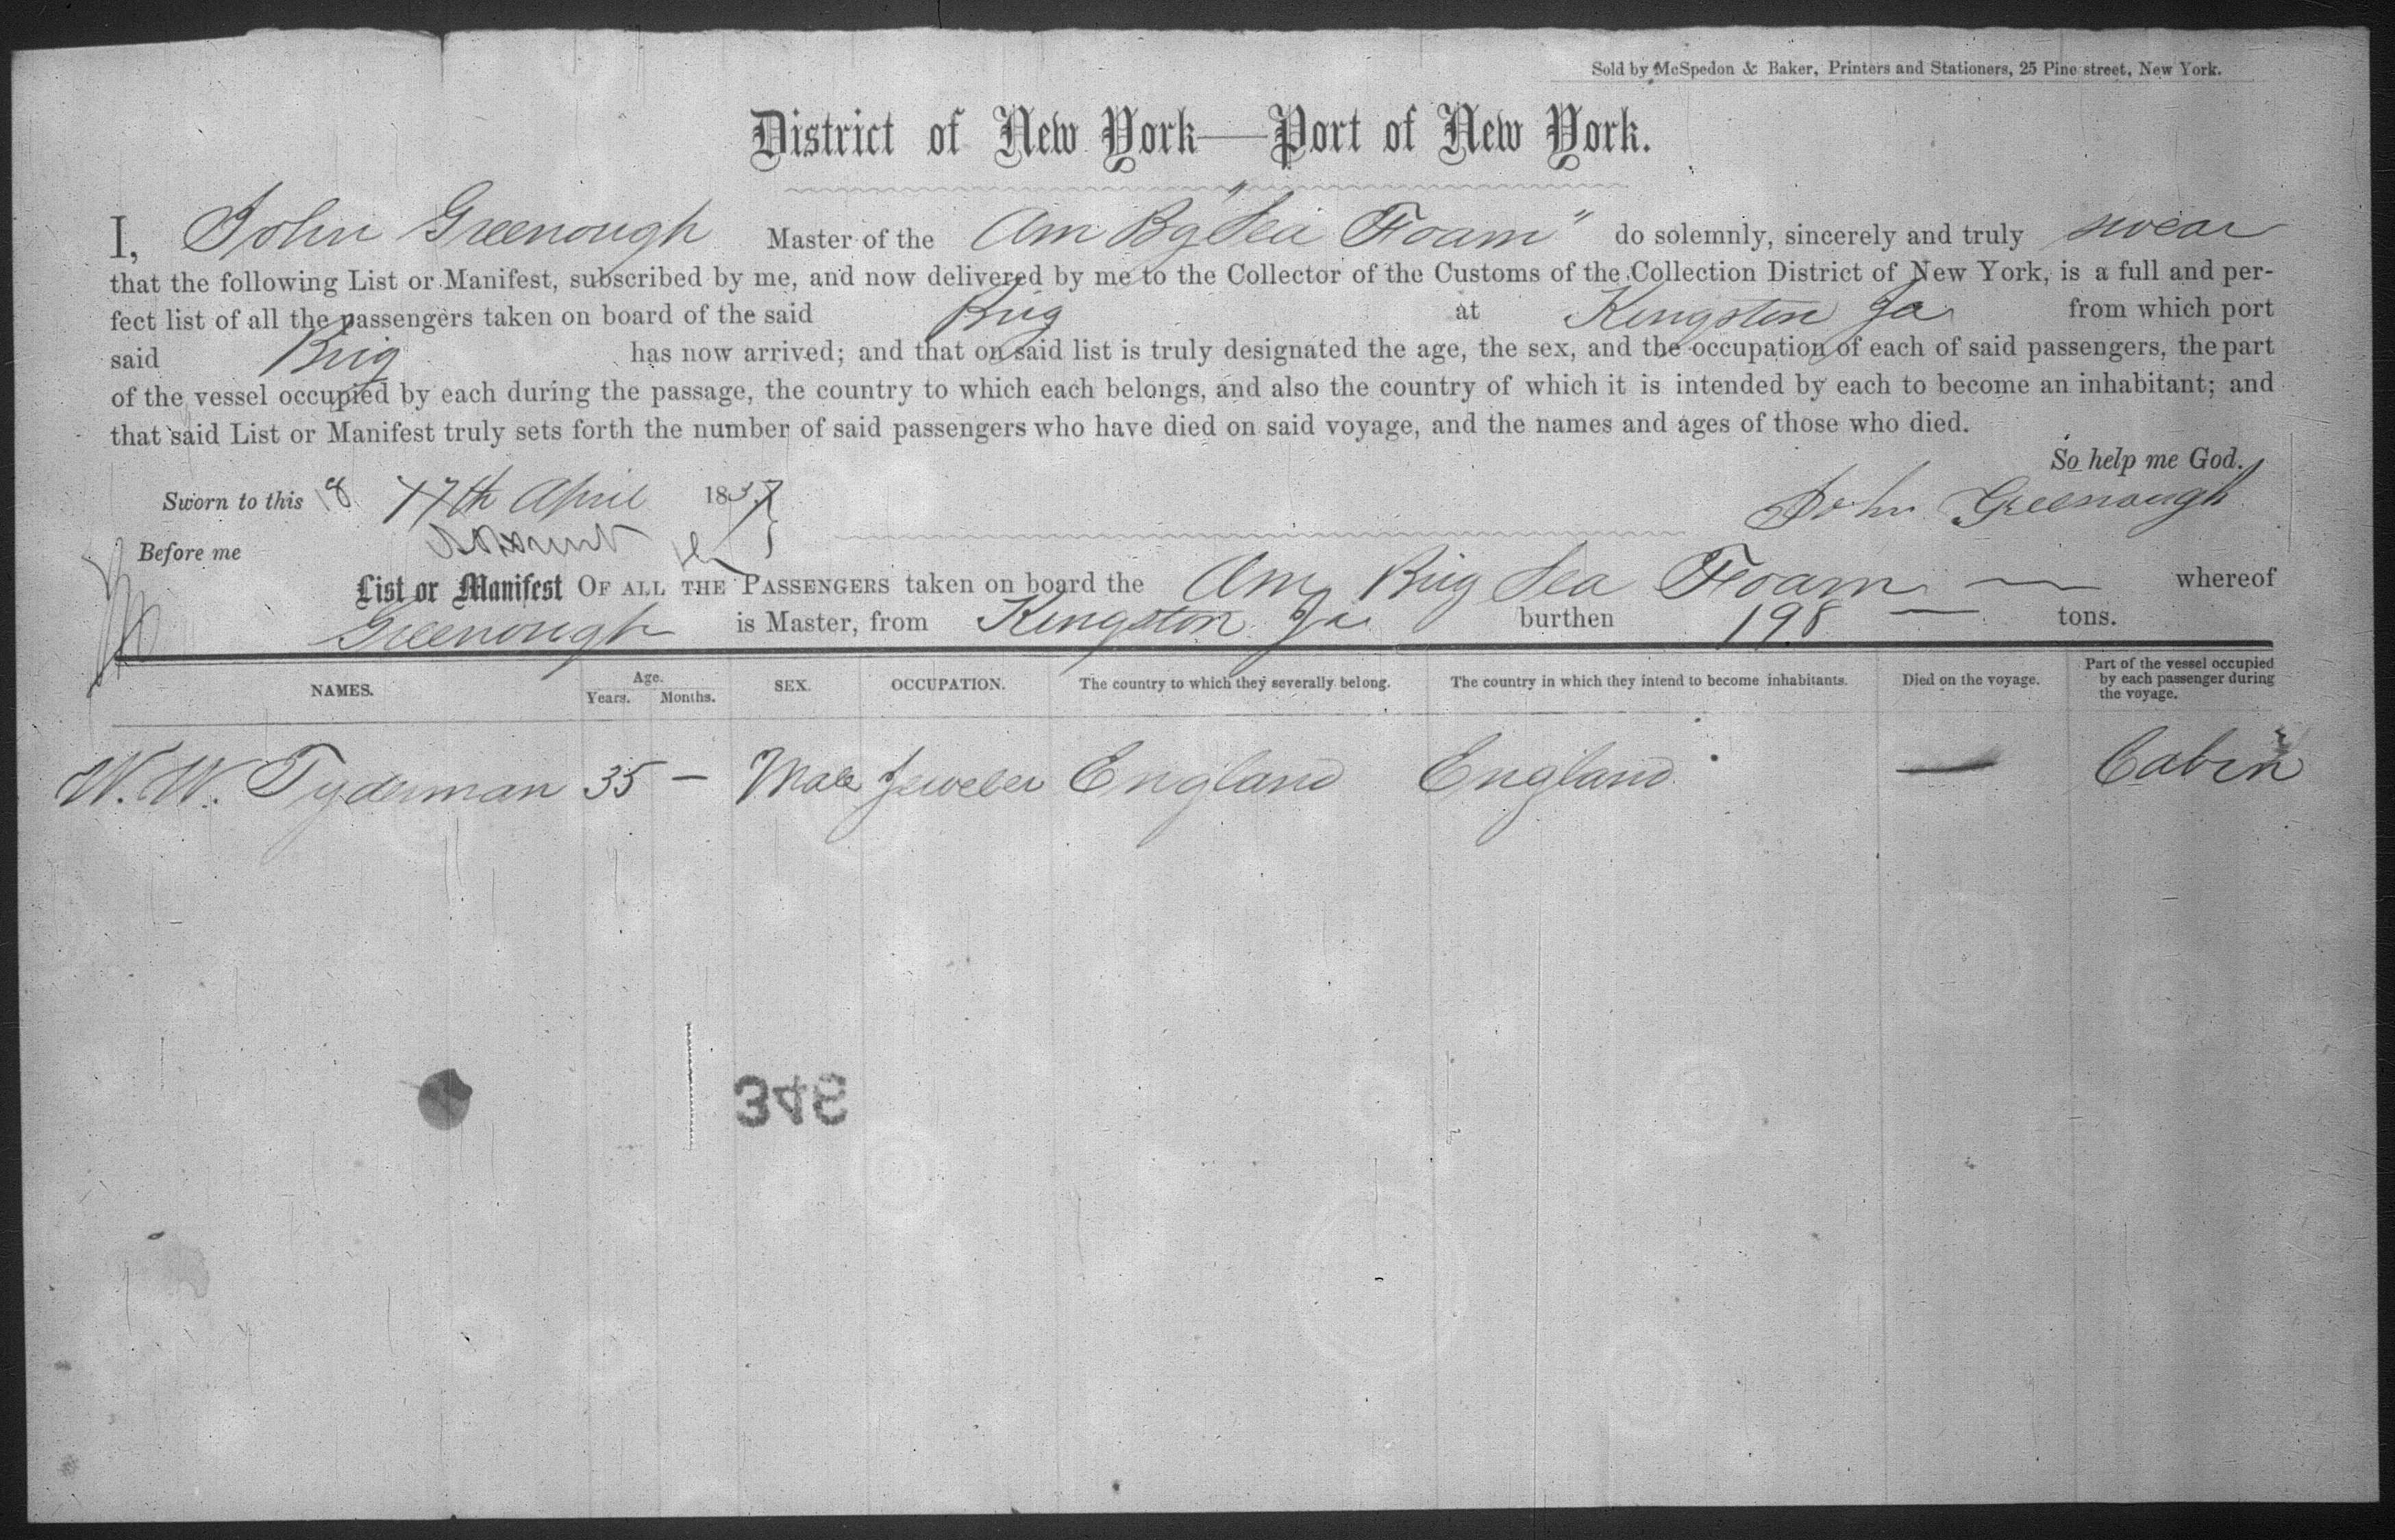 Sold by McSpedon & Baker, Printers and Stationers, 25 Pine street, New York.
District of New York—Port of New York.
I, John Greenough Master of the Am Bg "Sea Foam" do solemnly, sincerely and truly swear
that the following List or Manifest, subscribed by me, and now delivered by me to the Collector of the Customs of the Collection District of New York, is a full and per-
fect list of all the passengers taken on board of the said Brig at Kingston Ja from which port
said Brig has now arrived; and that on said list is truly designated the age, the sex, and the occupation of each of said passengers, the part
of the vessel occupied by each during the passage, the country to which each belongs, and also the country of which it is intended by each to become an inhabitant; and
that said List or Manifest truly sets forth the number of said passengers who have died on said voyage, and the names and ages of those who died.
So help me God.
Sworn to this 18 17th April 1857 John Greenough
Before me
List or Manifest OF ALL THE PASSENGERS taken on board the Am Brig Sea Foam — whereof
Greenough is Master, from Kingston Ja burthen 198 — tons.
NAMES. Age. Years. Months. SEX. OCCUPATION. The country to which they severally belong. The country in which they intend to become inhabitants. Died on the voyage. Part of the vessel occupied by each passenger during the voyage.
W. W. Tyderman 35 — Male Jeweler England England — Cabin
346